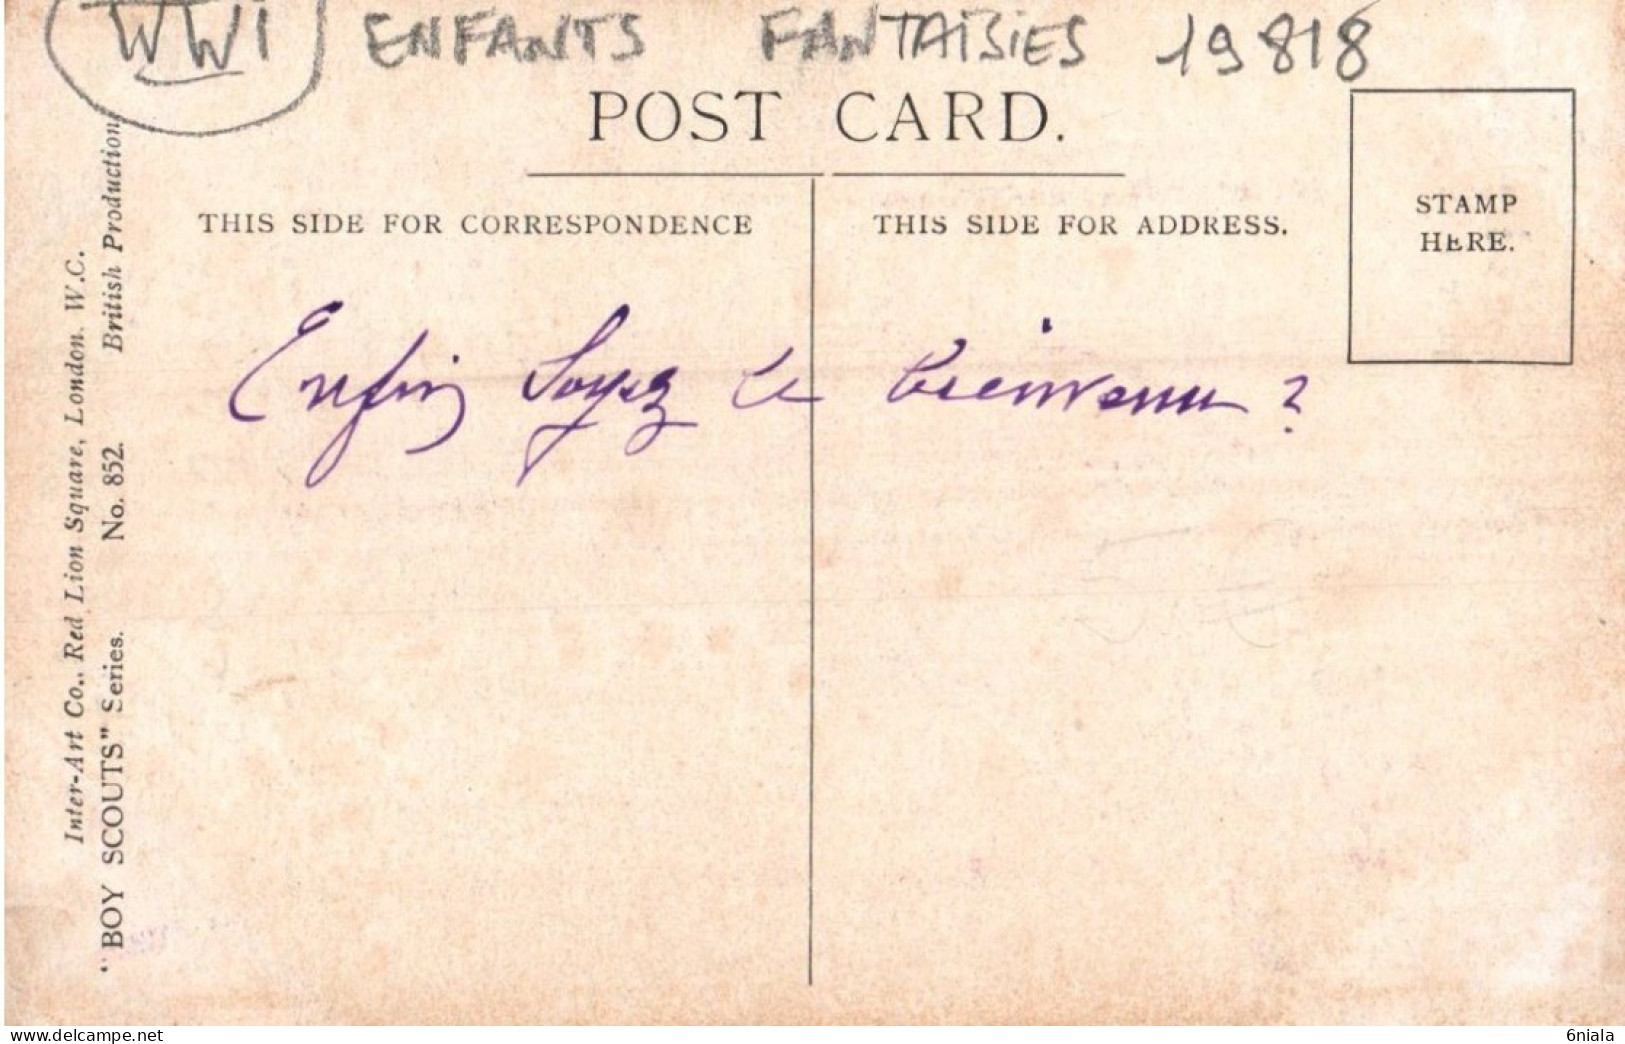 WWI ENFANTS FANTAISIES 19818
POST CARD.
THIS SIDE FOR CORRESPONDENCE
THIS SIDE FOR ADDRESS.
STAMP
HERE.
Enfin Soyez le bienvenu ?
Inter-Art Co., Red Lion Square, London. W.C.
"BOY SCOUTS" Series. No. 852. British Production.
www.delcampe.net
6niala